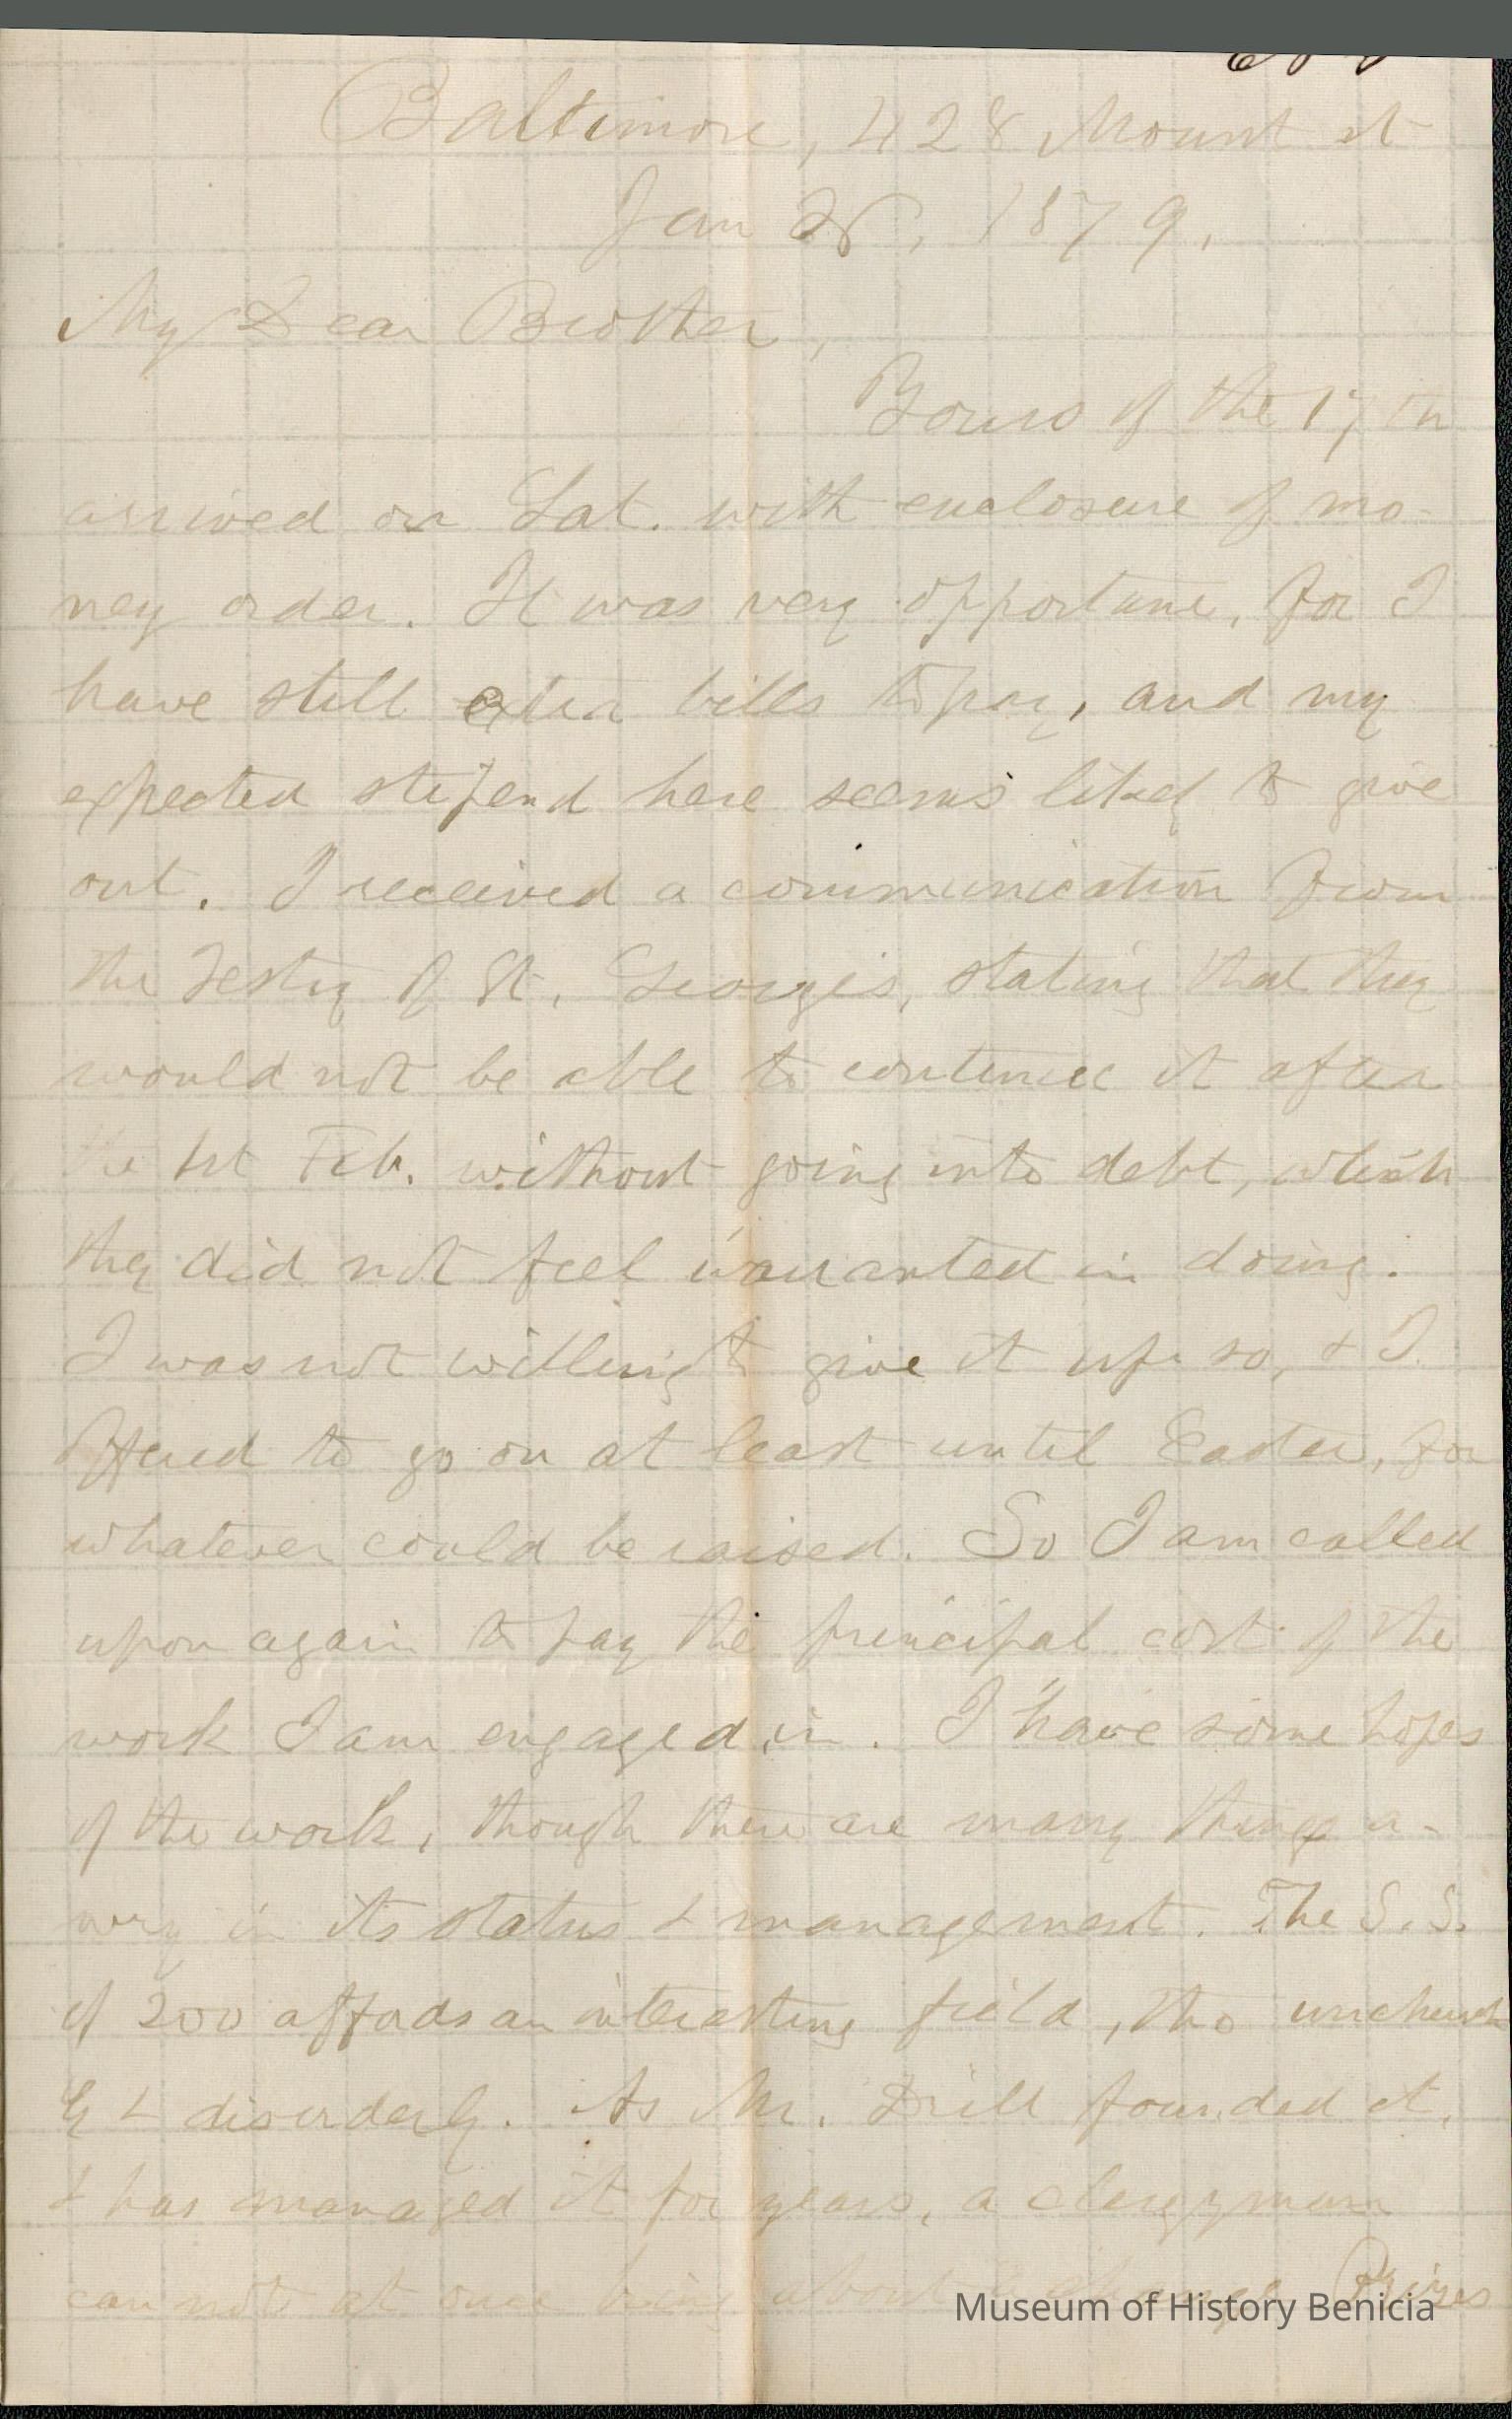 Baltimore, 428 Mount st
Jan 28, 1879.
My Dear Brother,
Yours of the 17th
arrived on Sat. with enclosure of mo-
ney order. It was very opportune, for I
have still extra bills to pay, and my
expected stipend here seems likely to give
out. I received a communication from
the Vestry of St. George's, stating that they
would not be able to continue it after
the 1st Feb. without going into debt, which
they did not feel warranted in doing.
I was not willing to give it up so, & I
offered to go on at least until Easter, for
whatever could be raised. So I am called
upon again to pay the principal cost of the
work I am engaged in. I have some hopes
of the work, though there are many things a-
wry in its status & management. The S.S.
of 200 affords an interesting field, tho unchurch
ly & disorderly. As Mr. Drill founded it,
& has managed it for years, a clergyman
can not at once bring about
Museum of History Benicia